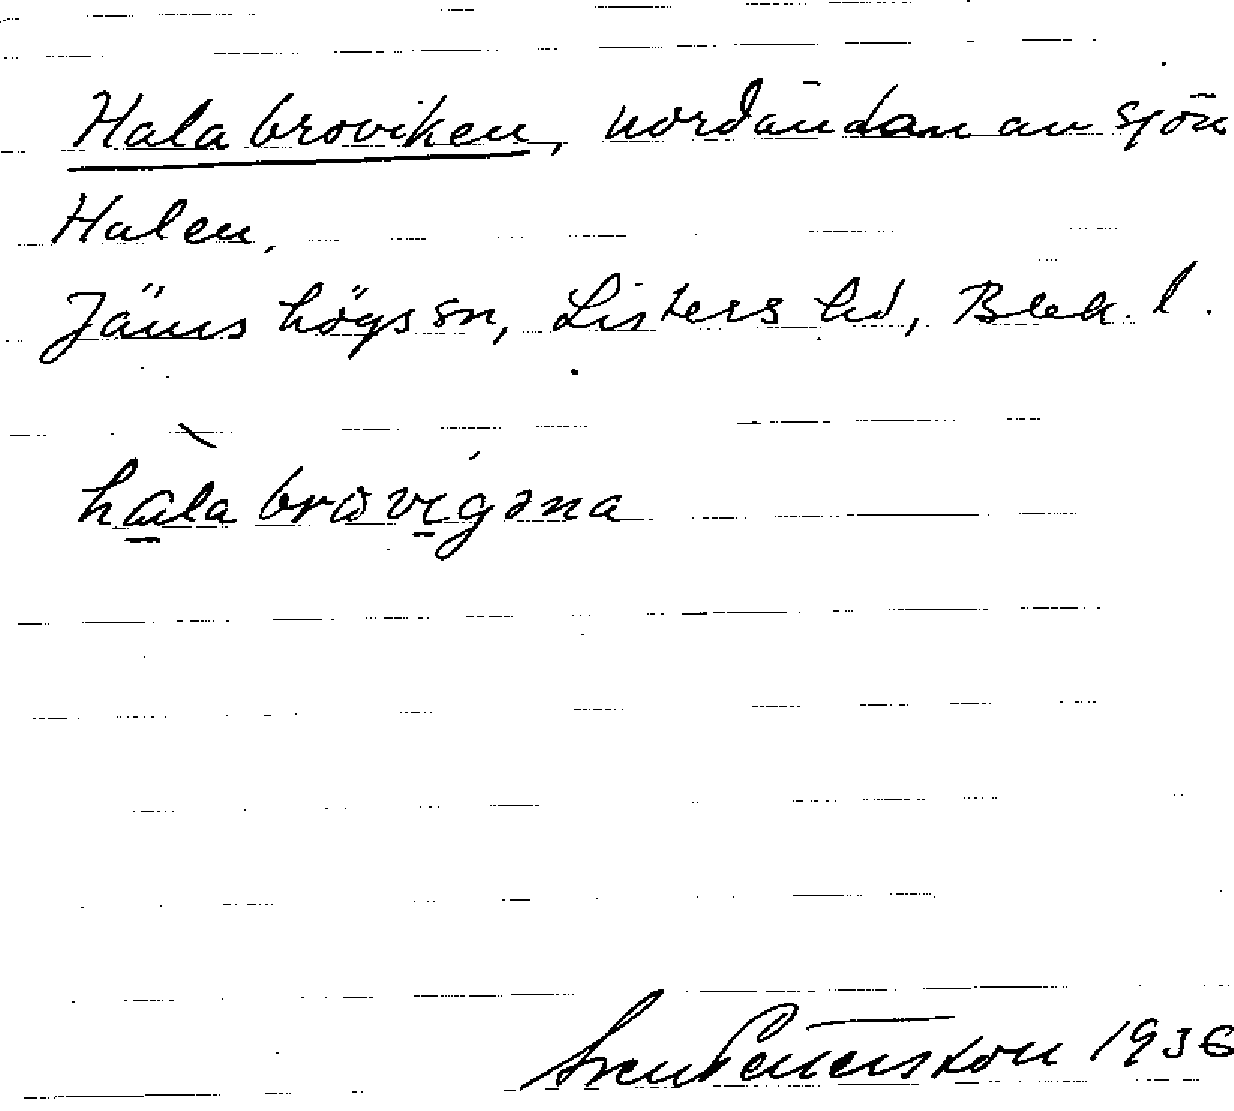 Halabroviken, nordändan av sjön
Halen.
Jämshögs sn, Listers hd, Blek. l.
hàlabrovígəna
Sven Petterson 1936